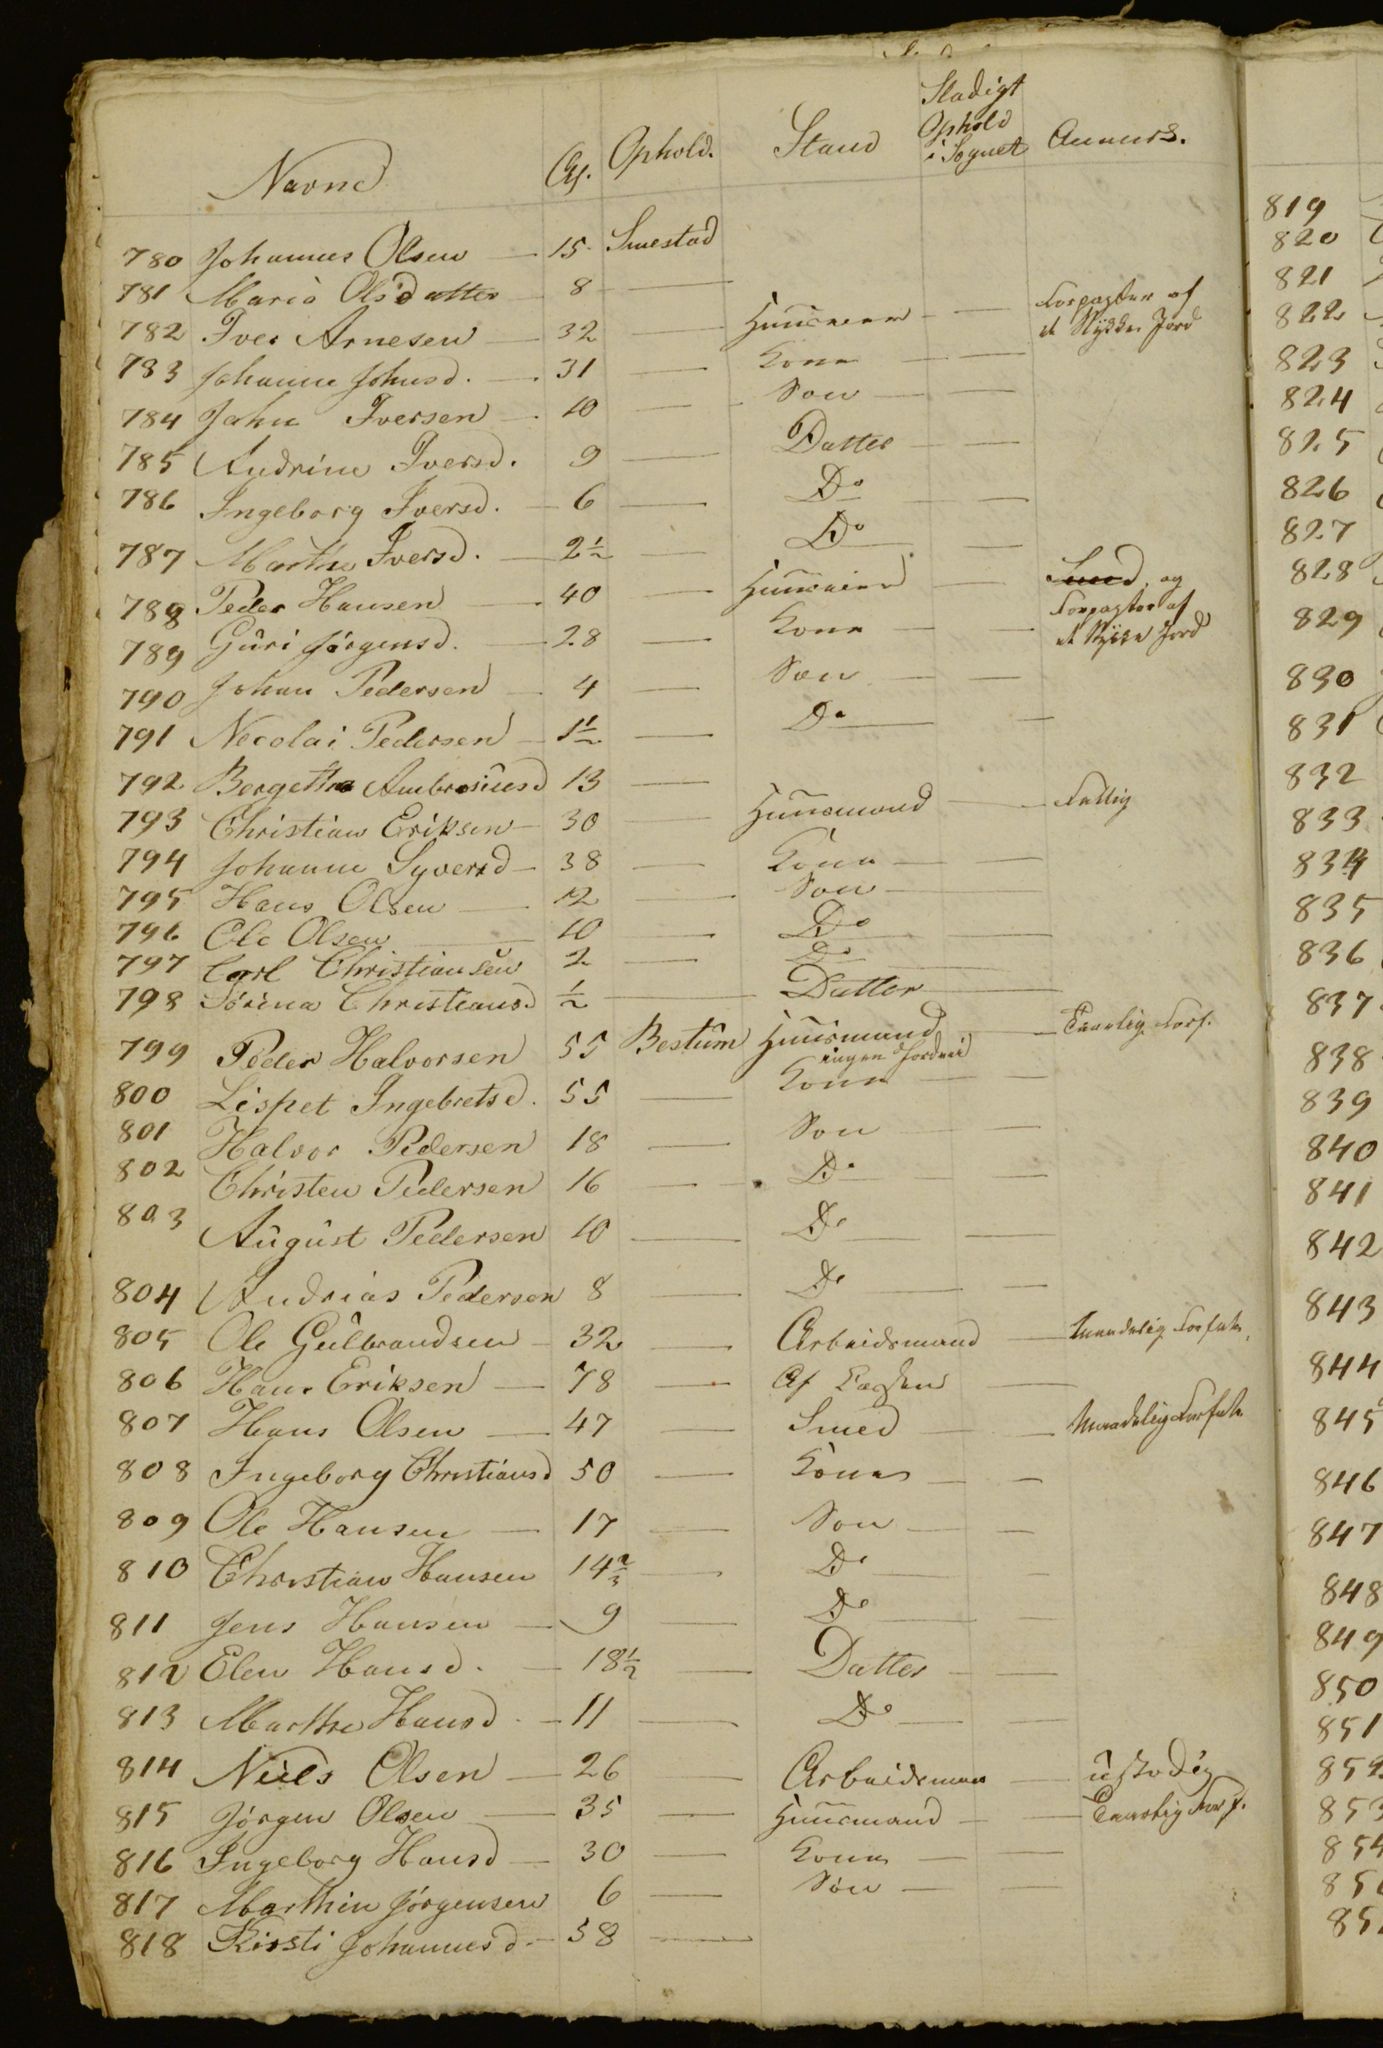 Navne Al. Ophold. Stand Stadigt Ophold i Sognet Anmerk.
780 Johannes Olsen — 15 Smestad
781 Maria Olsdatter 8 —
782 Iver Arnesen — 32 — Huuseier — Forpagter af et Stykke Jord
783 Johanne Johnsd. — 31 — Kone —
784 John Iversen — 10 — Søn —
785 Andrine Iversd. 9 — Datter —
786 Ingeborg Iversd. — 6 — Do —
787 Marthe Iversd. — 2½ — Do —
788 Peder Hansen — 40 — Huuseier — Smed, og
789 Guri Jørgensd. — 28 — Kone — Forpagter af et Stykke Jord
790 Johan Pedersen — 4 — Søn —
791 Necolai Pedersen — 1½ — Do —
792 Bergethe Ambrosiusd 13 —
793 Christian Eriksen — 30 — Huusmand — Fattig
794 Johanne Syversd — 38 — Kone —
795 Hans Olsen — 12 — Søn —
796 Ole Olsen — 10 — Do —
797 Carl Christiansen 2 — Do —
798 Sørina Christiansd ½ — Datter —
799 Peder Halvorsen 55 Bestum Huusmand — Taarlig Forf.
ingen Jordvei
800 Lispet Ingebretsd. 55 — Kone —
801 Halvor Pedersen 18 — Søn —
802 Christen Pedersen 16 — Do —
803 August Pedersen 10 — Do —
804 Andrias Pedersen 8 — Do —
805 Ole Gulbrandsen — 32 — Arbeidsmand — Maadelig Forfatn.
806 Hans Eriksen — 78 — Af Lægden —
807 Hans Olsen — 47 — Smed — Maadelig Forfatn.
808 Ingeborg Christiansd 50 — Kone —
809 Ole Hansen — 17 — Søn —
810 Christian Hansen 14⅔ — Do —
811 Jens Hansen — 9 — Do —
812 Elen Hansd. — 18½ — Datter —
813 Marthe Hansd. — 11 — Do —
814 Niels Olsen — 26 — Arbeidsman — ustadig
815 Jørgen Olsen — 35 — Huusmand — Taarlig Forf.
816 Ingeborg Hansd — 30 — Kone —
817 Marthin Jørgensen 6 — Søn —
818 Kirsti Johannesd — 58 —
819
820
821
822
823
824
825
826
827
828
829
830
831
832
833
834
835
836
837
838
839
840
841
842
843
844
845
846
847
848
849
850
851
852
853
854